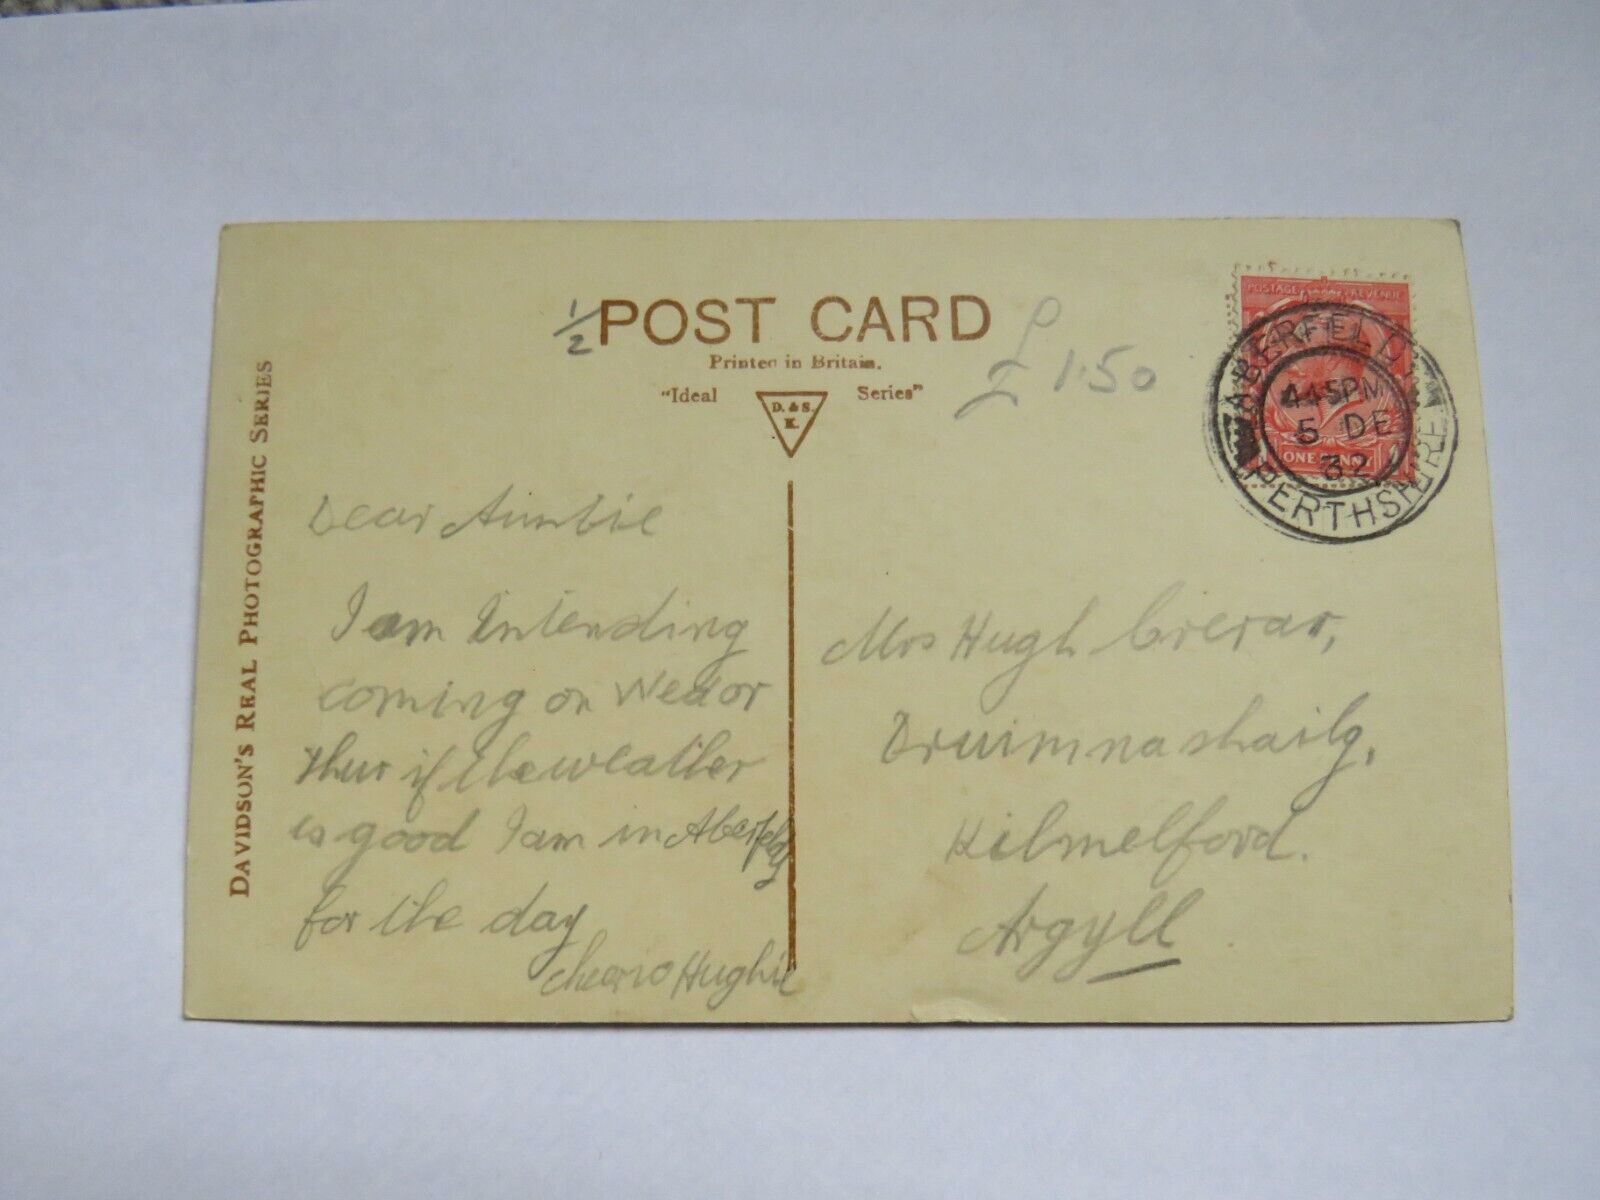 ½
POST CARD
Printed in Britain.
"Ideal Series"
D. & S.
K.
£1.50
DAVIDSON'S REAL PHOTOGRAPHIC SERIES
POSTAGE REVENUE
ONE PENNY
ABERFELDY
4 45PM
5 DE
32
PERTHSHIRE
Dear Auntie
I am Intending
coming on Wed or
Thur if the weather
is good I am in Aberfeldy
for the day
cheerio Hughie
Mrs Hugh Crerar,
Druimnashailg,
Kilmelford.
Argyll